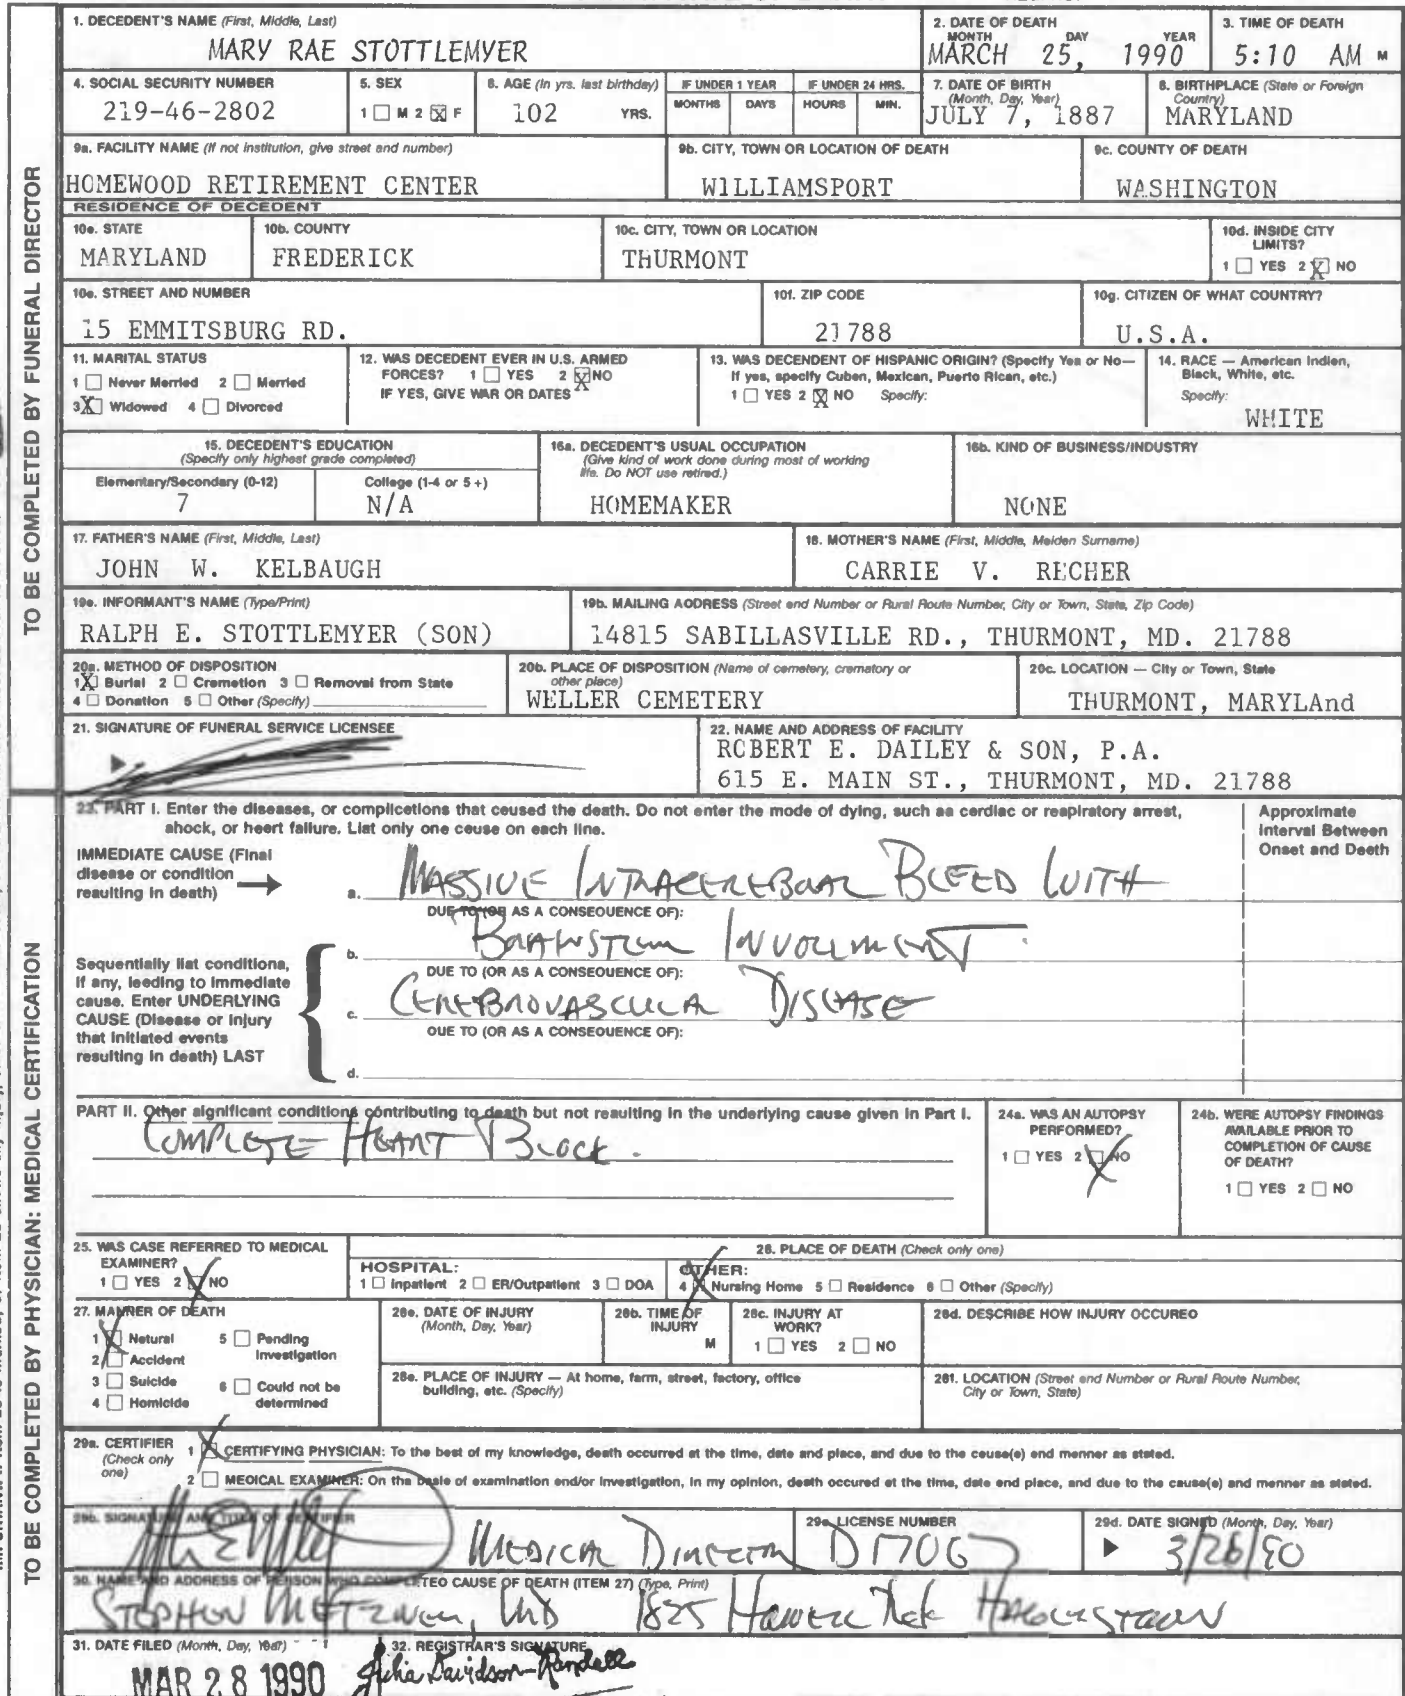 TO BE COMPLETED BY FUNERAL DIRECTOR
1. DECEDENT'S NAME (First, Middle, Last)
MARY RAE STOTTLEMYER
2. DATE OF DEATH
MONTH DAY YEAR
MARCH 25, 1990
3. TIME OF DEATH
5:10 AM M
4. SOCIAL SECURITY NUMBER
219-46-2802
5. SEX
1 M 2 X F
6. AGE (In yrs. last birthday)
102 YRS.
IF UNDER 1 YEAR
MONTHS DAYS
IF UNDER 24 HRS.
HOURS MIN.
7. DATE OF BIRTH
(Month, Day, Year)
JULY 7, 1887
8. BIRTHPLACE (State or Foreign
Country)
MARYLAND
9a. FACILITY NAME (If not institution, give street and number)
HOMEWOOD RETIREMENT CENTER
9b. CITY, TOWN OR LOCATION OF DEATH
WILLIAMSPORT
9c. COUNTY OF DEATH
WASHINGTON
RESIDENCE OF DECEDENT
10a. STATE
MARYLAND
10b. COUNTY
FREDERICK
10c. CITY, TOWN OR LOCATION
THURMONT
10d. INSIDE CITY
LIMITS?
1 YES 2 X NO
10e. STREET AND NUMBER
15 EMMITSBURG RD.
10f. ZIP CODE
21788
10g. CITIZEN OF WHAT COUNTRY?
U.S.A.
11. MARITAL STATUS
1 Never Married 2 Married
3 X Widowed 4 Divorced
12. WAS DECEDENT EVER IN U.S. ARMED
FORCES? 1 YES 2 X NO
IF YES, GIVE WAR OR DATES
13. WAS DECENDENT OF HISPANIC ORIGIN? (Specify Yes or No—
If yes, specify Cuban, Mexican, Puerto Rican, etc.)
1 YES 2 X NO Specify:
14. RACE — American Indian,
Black, White, etc.
Specify:
WHITE
15. DECEDENT'S EDUCATION
(Specify only highest grade completed)
Elementary/Secondary (0-12)
7
College (1-4 or 5+)
N/A
16a. DECEDENT'S USUAL OCCUPATION
(Give kind of work done during most of working
life. Do NOT use retired.)
HOMEMAKER
16b. KIND OF BUSINESS/INDUSTRY
NONE
17. FATHER'S NAME (First, Middle, Last)
JOHN W. KELBAUGH
18. MOTHER'S NAME (First, Middle, Maiden Surname)
CARRIE V. RECHER
19a. INFORMANT'S NAME (Type/Print)
RALPH E. STOTTLEMYER (SON)
19b. MAILING ADDRESS (Street and Number or Rural Route Number, City or Town, State, Zip Code)
14815 SABILLASVILLE RD., THURMONT, MD. 21788
20a. METHOD OF DISPOSITION
1 X Burial 2 Cremation 3 Removal from State
4 Donation 5 Other (Specify)
20b. PLACE OF DISPOSITION (Name of cemetery, crematory or
other place)
WELLER CEMETERY
20c. LOCATION — City or Town, State
THURMONT, MARYLAnd
21. SIGNATURE OF FUNERAL SERVICE LICENSEE
22. NAME AND ADDRESS OF FACILITY
ROBERT E. DAILEY & SON, P.A.
615 E. MAIN ST., THURMONT, MD. 21788
TO BE COMPLETED BY PHYSICIAN: MEDICAL CERTIFICATION
23. PART I. Enter the diseases, or complications that caused the death. Do not enter the mode of dying, such as cardiac or respiratory arrest,
shock, or heart failure. List only one cause on each line.
Approximate
Interval Between
Onset and Death
IMMEDIATE CAUSE (Final
disease or condition
resulting in death)
a. MASSIVE INTRACEREBRAL BLEED WITH
DUE TO (OR AS A CONSEQUENCE OF):
b. BRAINSTEM INVOLLMENT.
DUE TO (OR AS A CONSEQUENCE OF):
c. CEREBROVASCULAR DISEASE
DUE TO (OR AS A CONSEQUENCE OF):
d.
Sequentially list conditions,
if any, leading to immediate
cause. Enter UNDERLYING
CAUSE (Disease or injury
that initiated events
resulting in death) LAST
PART II. Other significant conditions contributing to death but not resulting in the underlying cause given in Part I.
COMPLETE HEART BLOCK.
24a. WAS AN AUTOPSY
PERFORMED?
1 YES 2 X NO
24b. WERE AUTOPSY FINDINGS
AVAILABLE PRIOR TO
COMPLETION OF CAUSE
OF DEATH?
1 YES 2 NO
25. WAS CASE REFERRED TO MEDICAL
EXAMINER?
1 YES 2 X NO
26. PLACE OF DEATH (Check only one)
HOSPITAL:
1 Inpatient 2 ER/Outpatient 3 DOA
OTHER:
4 X Nursing Home 5 Residence 6 Other (Specify)
27. MANNER OF DEATH
1 X Natural 5 Pending
Investigation
2 Accident
3 Suicide 6 Could not be
determined
4 Homicide
28a. DATE OF INJURY
(Month, Day, Year)
28b. TIME OF
INJURY
M
28c. INJURY AT
WORK?
1 YES 2 NO
28d. DESCRIBE HOW INJURY OCCURED
28e. PLACE OF INJURY — At home, farm, street, factory, office
building, etc. (Specify)
28f. LOCATION (Street and Number or Rural Route Number,
City or Town, State)
29a. CERTIFIER
(Check only
one)
1 X CERTIFYING PHYSICIAN: To the best of my knowledge, death occurred at the time, date and place, and due to the cause(s) and manner as stated.
2 MEDICAL EXAMINER: On the basis of examination and/or investigation, in my opinion, death occured at the time, date and place, and due to the cause(s) and manner as stated.
29b. SIGNATURE AND TITLE OF CERTIFIER
MEDICAL DIRECTOR
29c. LICENSE NUMBER
D17067
29d. DATE SIGNED (Month, Day, Year)
3/26/90
30. NAME AND ADDRESS OF PERSON WHO COMPLETED CAUSE OF DEATH (ITEM 27) (Type, Print)
STEPHEN METZNER, MD 1825 HOWELL HAGERSTOWN
31. DATE FILED (Month, Day, Year)
MAR 28 1990
32. REGISTRAR'S SIGNATURE
Julia Davidson-Randall